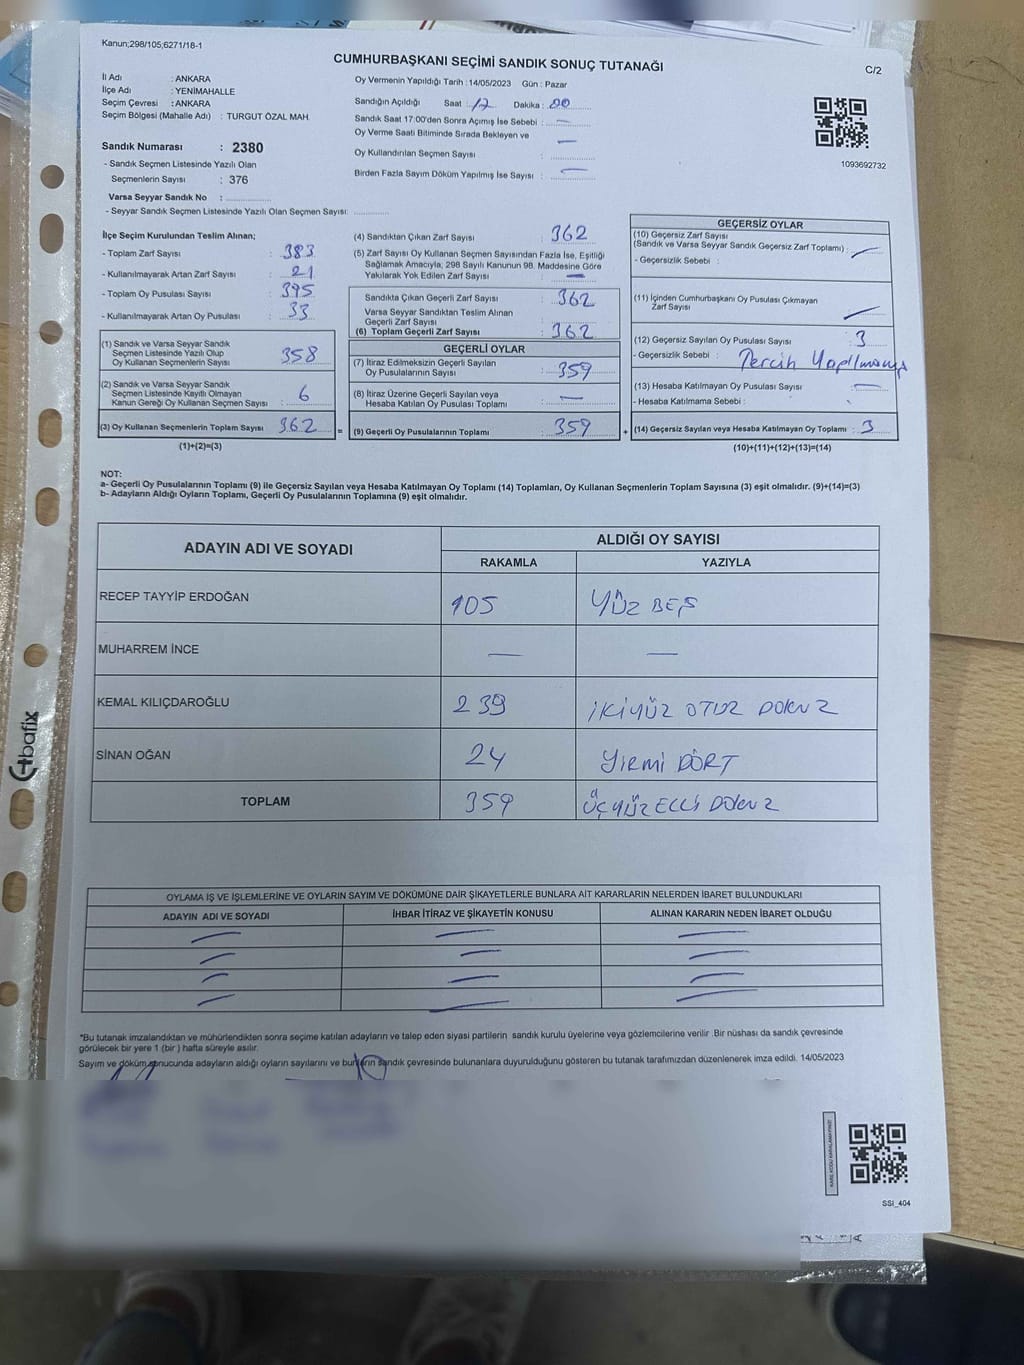 Kanun;298/105;6271/18-1
CUMHURBAŞKANI SEÇİMİ SANDIK SONUÇ TUTANAĞI
C/2
İl Adı : ANKARA
İlçe Adı : YENİMAHALLE
Seçim Çevresi : ANKARA
Seçim Bölgesi (Mahalle Adı) : TURGUT ÖZAL MAH.
Sandık Numarası : 2380
- Sandık Seçmen Listesinde Yazılı Olan
Seçmenlerin Sayısı : 376
Varsa Seyyar Sandık No :
- Seyyar Sandık Seçmen Listesinde Yazılı Olan Seçmen Sayısı:
Oy Vermenin Yapıldığı Tarih : 14/05/2023 Gün : Pazar
Sandığın Açıldığı Saat : 17 Dakika : 00
Sandık Saat 17:00'den Sonra Açımış İse Sebebi : —
Oy Verme Saati Bitiminde Sırada Bekleyen ve
Oy Kullandırılan Seçmen Sayısı : —
Birden Fazla Sayım Döküm Yapılmış İse Sayısı : —
1093692732
İlçe Seçim Kurulundan Teslim Alınan;
- Toplam Zarf Sayısı : 383
- Kullanılmayarak Artan Zarf Sayısı : 21
- Toplam Oy Pusulası Sayısı : 395
- Kullanılmayarak Artan Oy Pusulası : 33
(1) Sandık ve Varsa Seyyar Sandık
Seçmen Listesinde Yazılı Olup
Oy Kullanan Seçmenlerin Sayısı : 358
(2) Sandık ve Varsa Seyyar Sandık
Seçmen Listesinde Kayıtlı Olmayan
Kanun Gereği Oy Kullanan Seçmen Sayısı : 6
(3) Oy Kullanan Seçmenlerin Toplam Sayısı : 362
(1)+(2)=(3)
(4) Sandıktan Çıkan Zarf Sayısı : 362
(5) Zarf Sayısı Oy Kullanan Seçmen Sayısından Fazla İse, Eşitliği
Sağlamak Amacıyla, 298 Sayılı Kanunun 98. Maddesine Göre
Yakılarak Yok Edilen Zarf Sayısı : —
Sandıkta Çıkan Geçerli Zarf Sayısı : 362
Varsa Seyyar Sandıktan Teslim Alınan
Geçerli Zarf Sayısı :
(6) Toplam Geçerli Zarf Sayısı : 362
GEÇERLİ OYLAR
(7) İtiraz Edilmeksizin Geçerli Sayılan
Oy Pusulalarının Sayısı : 359
(8) İtiraz Üzerine Geçerli Sayılan veya
Hesaba Katılan Oy Pusulası Toplamı : —
= (9) Geçerli Oy Pusulalarının Toplamı : 359
GEÇERSİZ OYLAR
(10) Geçersiz Zarf Sayısı
(Sandık ve Varsa Seyyar Sandık Geçersiz Zarf Toplamı) : —
- Geçersizlik Sebebi :
(11) İçinden Cumhurbaşkanı Oy Pusulası Çıkmayan
Zarf Sayısı : —
(12) Geçersiz Sayılan Oy Pusulası Sayısı : 3
- Geçersizlik Sebebi : Tercih Yapılmamış
(13) Hesaba Katılmayan Oy Pusulası Sayısı : —
- Hesaba Katılmama Sebebi :
+ (14) Geçersiz Sayılan veya Hesaba Katılmayan Oy Toplamı : 3
(10)+(11)+(12)+(13)=(14)
NOT:
a- Geçerli Oy Pusulalarının Toplamı (9) ile Geçersiz Sayılan veya Hesaba Katılmayan Oy Toplamı (14) Toplamları, Oy Kullanan Seçmenlerin Toplam Sayısına (3) eşit olmalıdır. (9)+(14)=(3)
b- Adayların Aldığı Oyların Toplamı, Geçerli Oy Pusulalarının Toplamına (9) eşit olmalıdır.
ADAYIN ADI VE SOYADI ALDIĞI OY SAYISI
RAKAMLA YAZIYLA
RECEP TAYYİP ERDOĞAN 105 YÜZ BEŞ
MUHARREM İNCE — —
KEMAL KILIÇDAROĞLU 239 İKİYÜZ OTUZ DOKUZ
SİNAN OĞAN 24 YİRMİ DÖRT
TOPLAM 359 ÜÇYÜZ ELLİ DOKUZ
OYLAMA İŞ VE İŞLEMLERİNE VE OYLARIN SAYIM VE DÖKÜMÜNE DAİR ŞİKAYETLERLE BUNLARA AİT KARARLARIN NELERDEN İBARET BULUNDUKLARI
ADAYIN ADI VE SOYADI İHBAR İTİRAZ VE ŞİKAYETİN KONUSU ALINAN KARARIN NEDEN İBARET OLDUĞU
— — —
— — —
— — —
— — —
*Bu tutanak imzalandıktan ve mühürlendikten sonra seçime katılan adayların ve talep eden siyasi partilerin sandık kurulu üyelerine veya gözlemcilerine verilir .Bir nüshası da sandık çevresinde
görülecek bir yere 1 (bir ) hafta süreyle asılır.
Sayım ve döküm sonucunda adayların aldığı oyların sayılarını ve bunların sandık çevresinde bulunanlara duyurulduğunu gösteren bu tutanak tarafımızdan düzenlenerek imza edildi. 14/05/2023
SSI_404
bafix